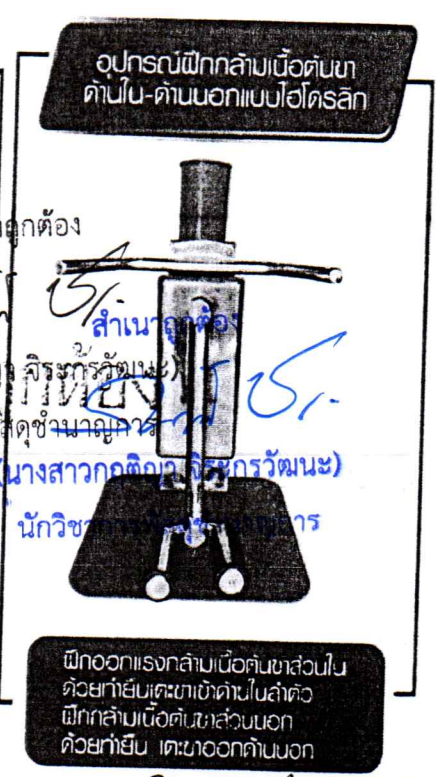 อุปกรณ์ฝึกกล้ามเนื้อต้นขา
ด้านใน-ด้านนอกแบบไฮโดรลิก
ถูกต้อง
สำเนาถูกต้อง
จิระกรวัฒนะ)
(นางสาวกฤติญา จิระกรวัฒนะ)
ฝึกออกแรงกล้ามเนื้อต้นขาส่วนใน
ด้วยท่ายืนเตะขาเข้าด้านในลำตัว
ฝึกกล้ามเนื้อต้นขาส่วนนอก
ด้วยท่ายืน เตะขาออกด้านนอก